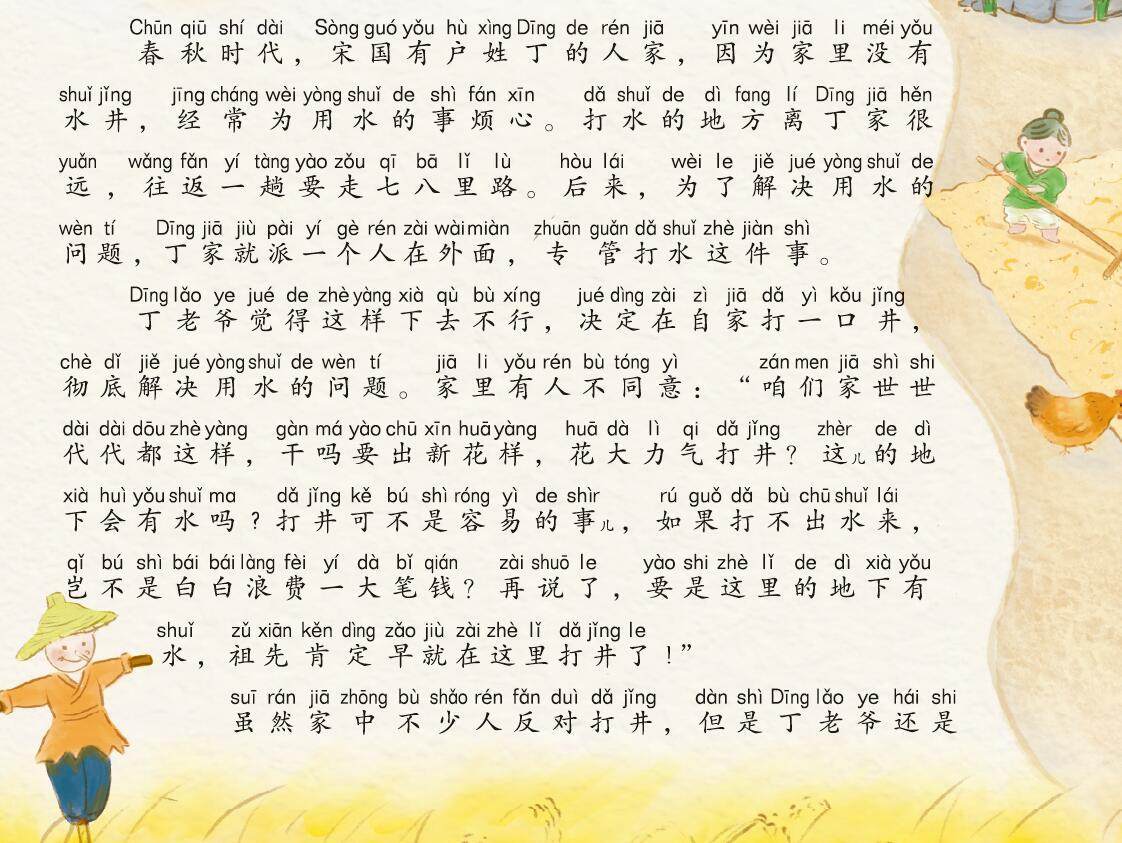 Chūn qiū shí dài Sòng guó yǒu hù xìng Dīng de rén jiā yīn wèi jiā li méi yǒu
春秋时代，宋国有户姓丁的人家，因为家里没有
shuǐ jǐng jīng cháng wèi yòng shuǐ de shì fán xīn dǎ shuǐ de dì fang lí Dīng jiā hěn
水井，经常为用水的事烦心。打水的地方离丁家很
yuǎn wǎng fǎn yí tàng yào zǒu qī bā lǐ lù hòu lái wèi le jiě jué yòng shuǐ de
远，往返一趟要走七八里路。后来，为了解决用水的
wèn tí Dīng jiā jiù pài yí gè rén zài wài miàn zhuān guǎn dǎ shuǐ zhè jiàn shì
问题，丁家就派一个人在外面，专管打水这件事。
Dīng lǎo ye jué de zhè yàng xià qù bù xíng jué dìng zài zì jiā dǎ yì kǒu jǐng
丁老爷觉得这样下去不行，决定在自家打一口井，
chè dǐ jiě jué yòng shuǐ de wèn tí jiā li yǒu rén bù tóng yì zán men jiā shì shi
彻底解决用水的问题。家里有人不同意：“咱们家世世
dài dài dōu zhè yàng gàn má yào chū xīn huā yàng huā dà lì qi dǎ jǐng zhèr de dì
代代都这样，干吗要出新花样，花大力气打井？这儿的地
xià huì yǒu shuǐ ma dǎ jǐng kě bú shì róng yì de shìr rú guǒ dǎ bù chū shuǐ lái
下会有水吗？打井可不是容易的事儿，如果打不出水来，
qǐ bú shì bái bái làng fèi yí dà bǐ qián zài shuō le yào shi zhè lǐ de dì xià yǒu
岂不是白白浪费一大笔钱？再说了，要是这里的地下有
shuǐ zǔ xiān kěn dìng zǎo jiù zài zhè lǐ dǎ jǐng le
水，祖先肯定早就在这里打井了！”
suī rán jiā zhōng bù shǎo rén fǎn duì dǎ jǐng dàn shì Dīng lǎo ye hái shi
虽然家中不少人反对打井，但是丁老爷还是